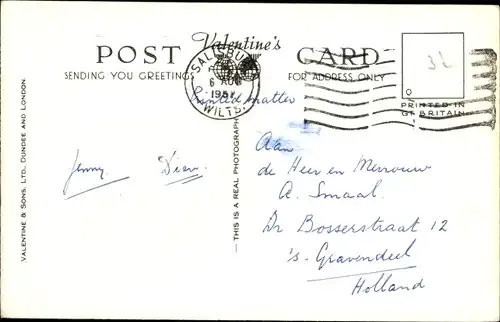 POST Valentine's CARD
SENDING YOU GREETINGS FOR ADDRESS ONLY
SALISBURY
6 AUG
WILTS.
Printed matter
32
PRINTED IN
GT BRITAIN
VALENTINE & SONS. LTD., DUNDEE AND LONDON.
THIS IS A REAL PHOTOGRAPH
Jenny. Dien.
Aan
de Heer en Mevrouw
A. Smaal.
Dr Bosserstraat 12
's-Gravendeel
Holland